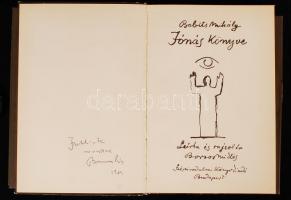 Babits Mihály
Jónás Könyve
Leírta és rajzolta
Borsos Miklós
Szépirodalmi Könyvkiadó
Budapest
darabanth